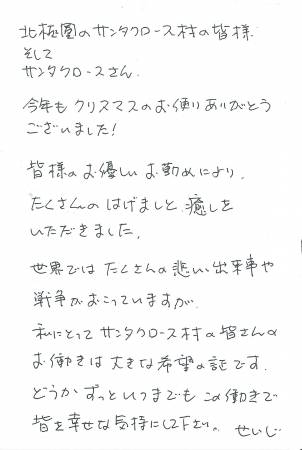 北極圏のサンタクロース村の皆様
そして
サンタクロースさん
今年も クリスマスのお便りありがとう
ございました!
皆様の お優しい お勤めにより、
たくさんの はげましと 癒しを
いただきました。
世界では たくさんの悲しい出来事や
戦争が おこっていますが、
私にとって サンタクロース村の皆さんの
お働きは 大きな希望の証です。
どうか ずっといつまでも この働きで
皆を幸せな気持にして下さい。 せいじ